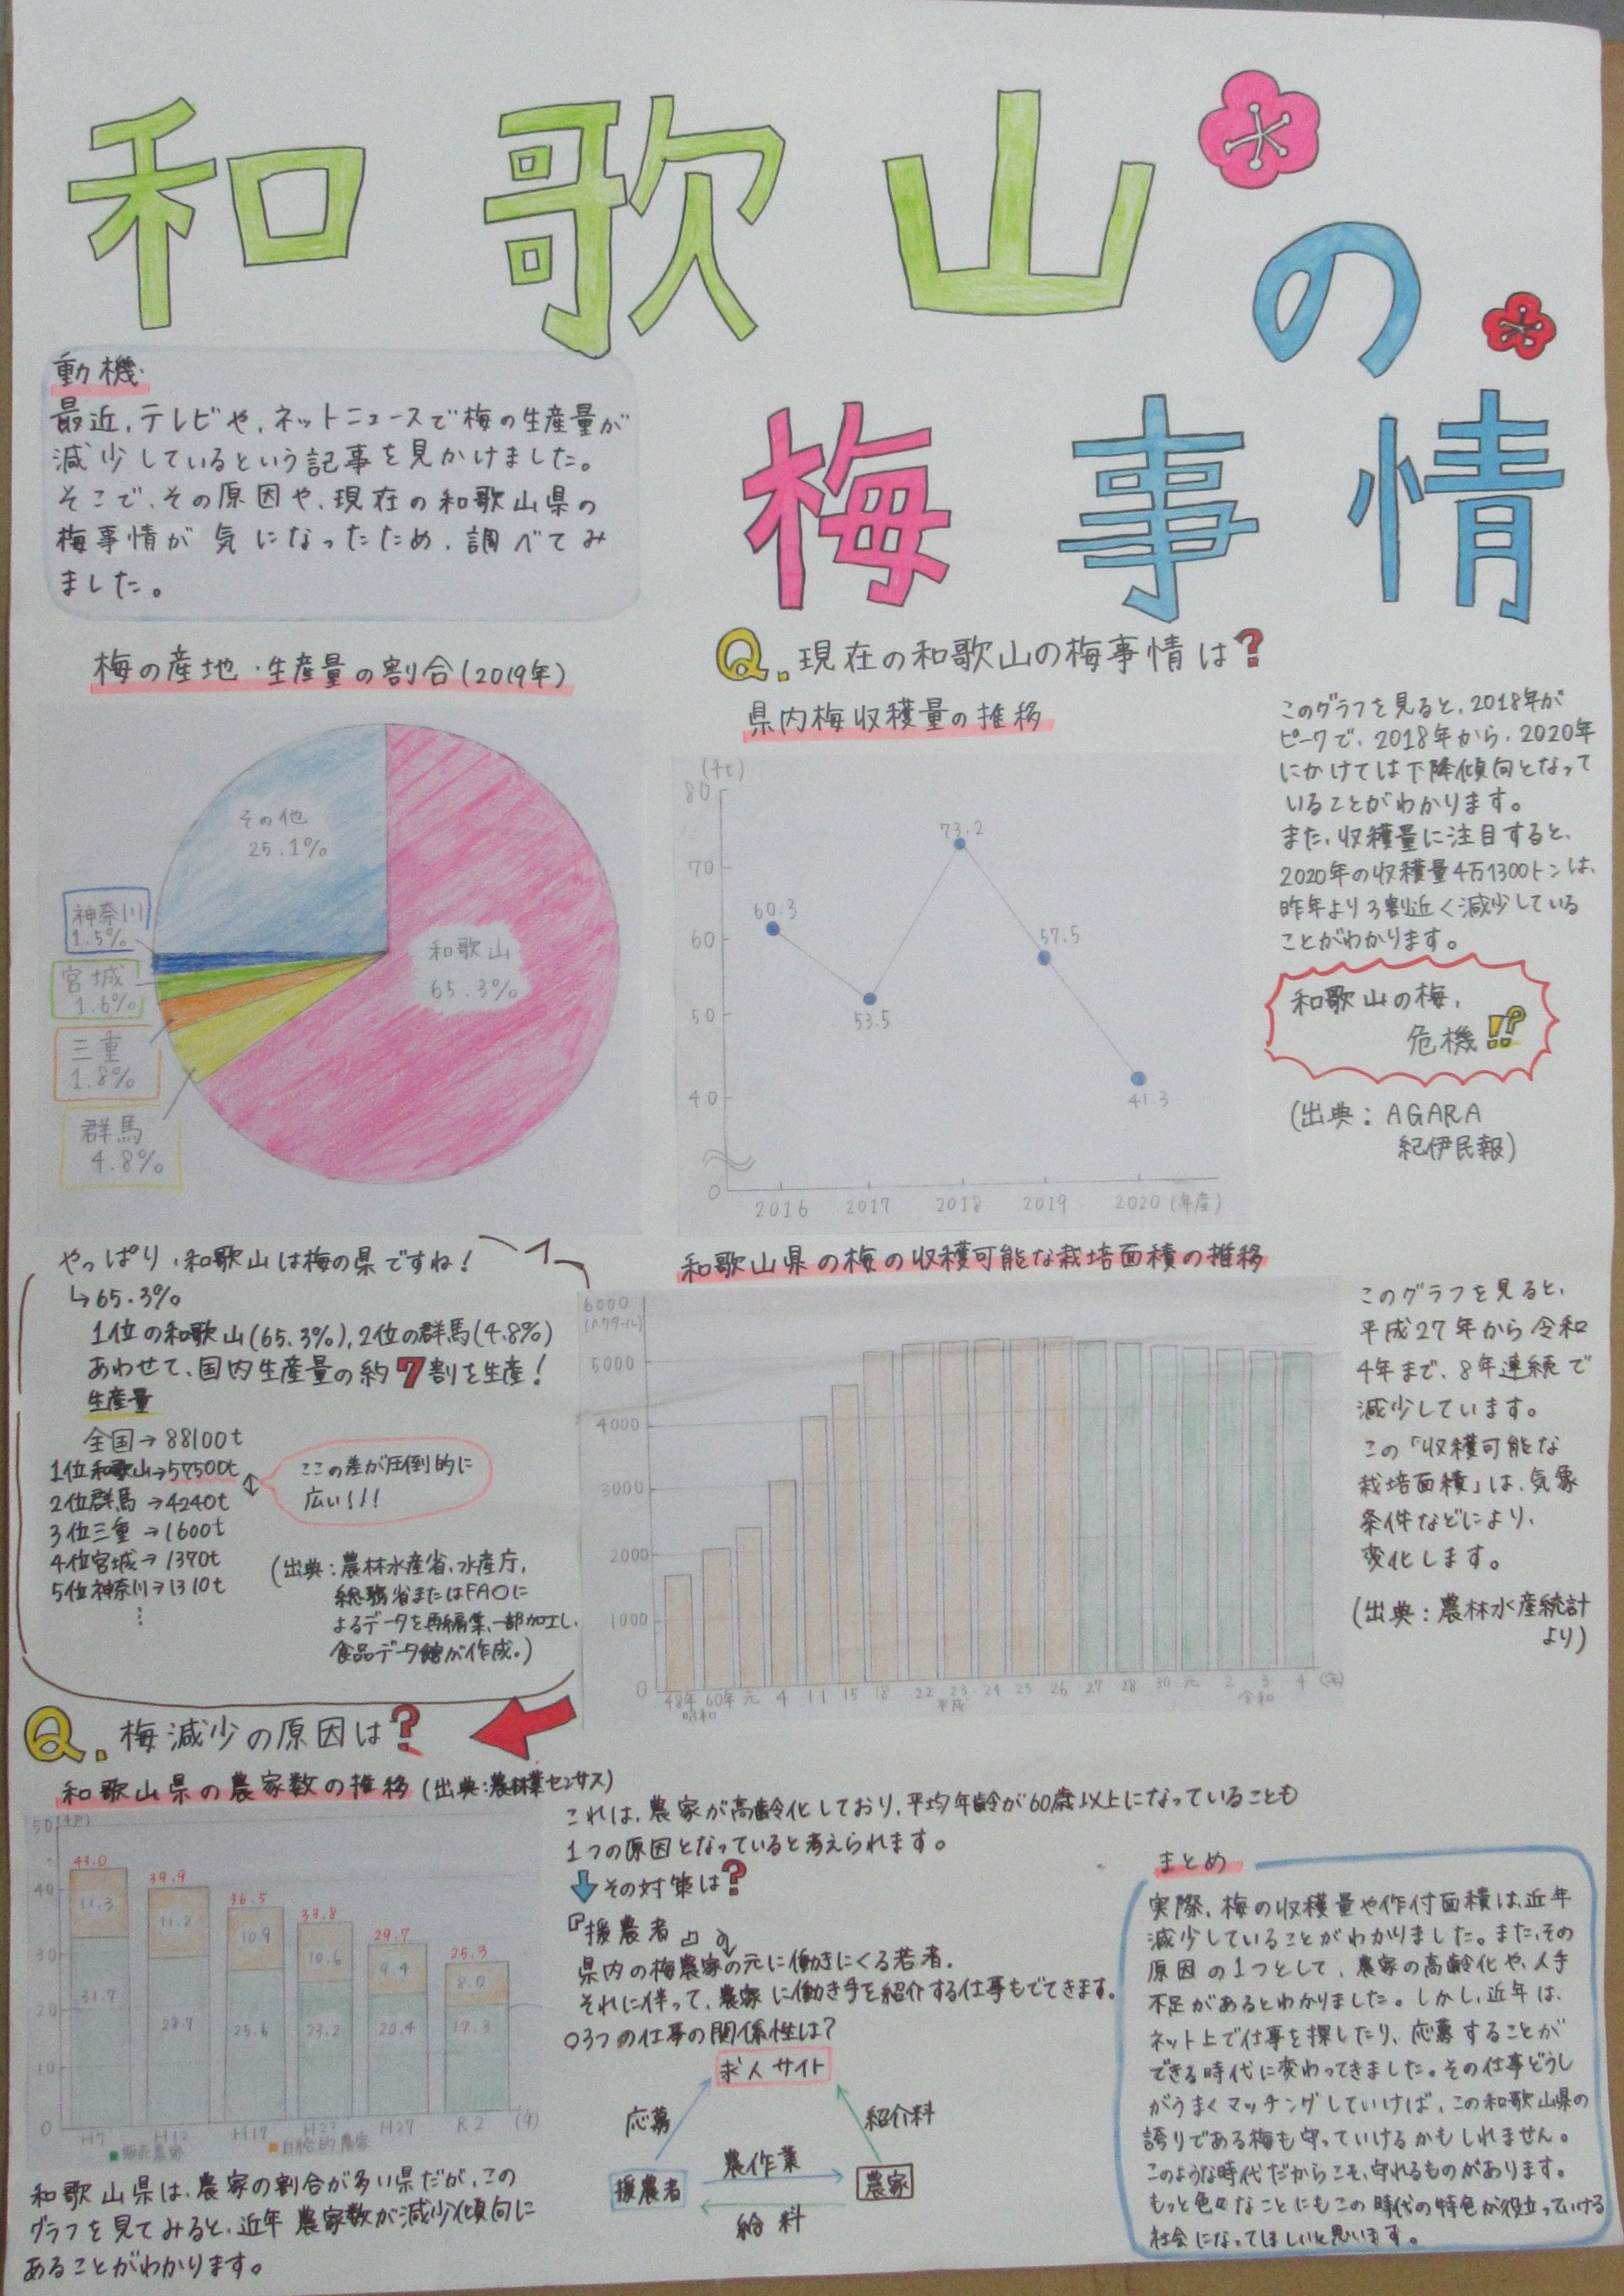 和歌山の
梅事情
動機
最近、テレビや、ネットニュースで梅の生産量が
減少しているという記事を見かけました。
そこで、その原因や、現在の和歌山県の
梅事情が気になったため、調べてみ
ました。
梅の産地・生産量の割合(2019年)
その他
25.1%
神奈川
1.5%
宮城
1.6%
三重
1.8%
群馬
4.8%
和歌山
65.3%
やっぱり、和歌山は梅の県ですね!
↳65.3%
1位の和歌山(65.3%)、2位の群馬(4.8%)
あわせて、国内生産量の約7割を生産!
生産量
全国→88100t
1位和歌山→57500t
2位群馬→4240t
3位三重→1600t
4位宮城→1370t
5位神奈川→1310t
⋮
ここの差が圧倒的に
広い!!!
(出典:農林水産省、水産庁、
総務省またはFAOに
よるデータを再編集、一部加工し、
食品データ館が作成。)
Q.現在の和歌山の梅事情は?
県内梅収穫量の推移
(千t)
80
70
60
50
40
0
60.3
53.5
73.2
57.5
41.3
2016 2017 2018 2019 2020(年産)
このグラフを見ると、2018年が
ピークで、2018年から、2020年
にかけては下降傾向となって
いることがわかります。
また、収穫量に注目すると、
2020年の収穫量4万1300トンは、
昨年より3割近く減少している
ことがわかります。
和歌山の梅、
危機!!?
(出典:AGARA
紀伊民報)
和歌山県の梅の収穫可能な栽培面積の推移
6000
(ヘクタール)
5000
4000
3000
2000
1000
0
48年 60年 元 4 11 15 18 22 23 24 25 26 27 28 30 元 2 3 4 (年)
昭和 平成 令和
このグラフを見ると、
平成27年から令和
4年まで、8年連続で
減少しています。
この「収穫可能な
栽培面積」は、気象
条件などにより、
変化します。
(出典:農林水産統計
より)
Q.梅減少の原因は?
和歌山県の農家数の推移(出典:農林業センサス)
50(千戸)
40
30
20
10
0
43.0
11.3
31.7
39.9
11.2
28.7
36.5
10.9
25.6
33.8
10.6
23.2
29.7
9.4
20.4
25.3
8.0
17.3
H7 H12 H17 H22 H27 R2 (年)
販売農家 自給的農家
和歌山県は、農家の割合が多い県だが、この
グラフを見てみると、近年農家数が減少傾向に
あることがわかります。
これは、農家が高齢化しており、平均年齢が60歳以上になっていることも
1つの原因となっていると考えられます。
↓その対策は?
『援農者』
県内の梅農家の元に働きにくる若者。
それに伴って、農家に働き手を紹介する仕事もでてきます。
○3つの仕事の関係性は?
求人サイト
応募
紹介料
農作業
援農者
農家
給料
まとめ
実際、梅の収穫量や作付面積は、近年
減少していることがわかりました。また、その
原因の1つとして、農家の高齢化や、人手
不足があるとわかりました。しかし、近年は、
ネット上で仕事を探したり、応募することが
できる時代に変わってきました。その仕事どうし
がうまくマッチングしていけば、この和歌山県の
誇りである梅も守っていけるかもしれません。
このような時代だからこそ、守れるものがあります。
もっと色々なことにもこの時代の特色が役立っていける
社会になってほしいと思います。